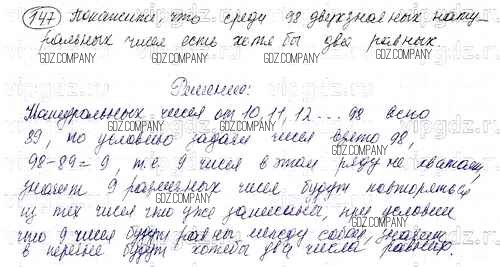 147 Покажите, что среди 98 двухзначных нату-
ральных чисел есть хотя бы два равных.
GDZ.COMPANY GDZ.COMPANY GDZ.COMPANY GDZ.COMPANY
Решение:
Натуральных чисел от 10, 11, 12 ... 98 всего
GDZ.COMPANY GDZ.COMPANY
89, по условию задачи чисел взято 98,
98-89=9, т.е. 9 чисел в этом ряду не хватает,
GDZ.COMPANY GDZ.COMPANY GDZ.COMPANY
значит 9 различных чисел будут повторяться
из тех чисел что уже записаны, при условии
GDZ.COMPANY GDZ.COMPANY
что 9 чисел будут равны между собой, значит
в перечне будут хотябы два числа равных.